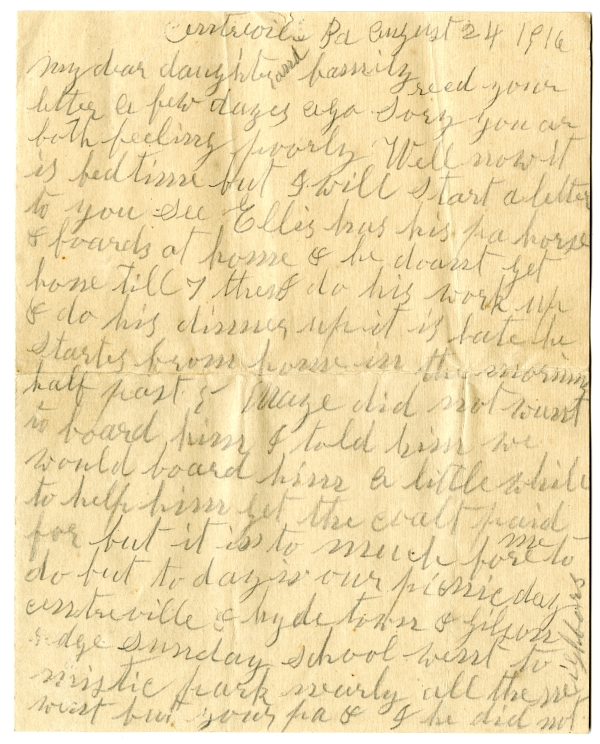 Centreville Pa August 24 1916
my dear daughter and family recd your
letter a few dayes ago Sory you ar
both feeling poorly Well now it
is bedtime but I will start a letter
to you see Ellis has his pa horse
& boards at home & he doant get
home till 7 then I do his work up
& do his dinner up it is late he
startes from home in the morning
half past 5 Maze did not want
to board him I told him we
would board him a little while
to help him get the coalt paid
for but it is to much fore me to
do but to day is our picnic day
centreville & hydetown & gilson
redge Sunday school went to
mistic park nearly all the neighbors
went but your pa & I he did not